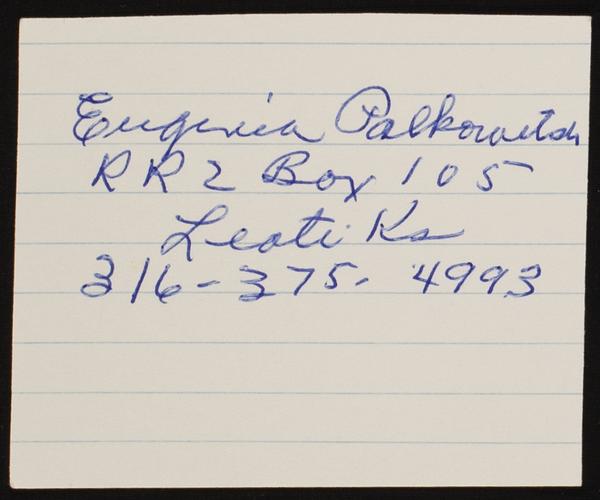 Eugenia Palkowitsh
RR2 Box 105
Leoti Ks
316-375-4993